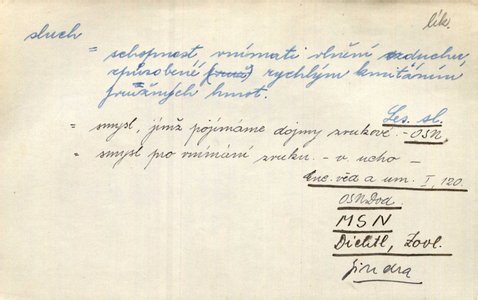 lék.
sluch
= schopnost vnímati vlnění vzduchu,
způsobené rychlým kmitáním
pružných hmot.
Les. sl.
= smysl, jímž pojímáme dojmy zvukové. - OSN
= smysl pro vnímání zvuku. - v. ucho -
Enc. věd a um. I, 120.
OSN Dod.
MSN
Dichtl, Zool.
Jindra